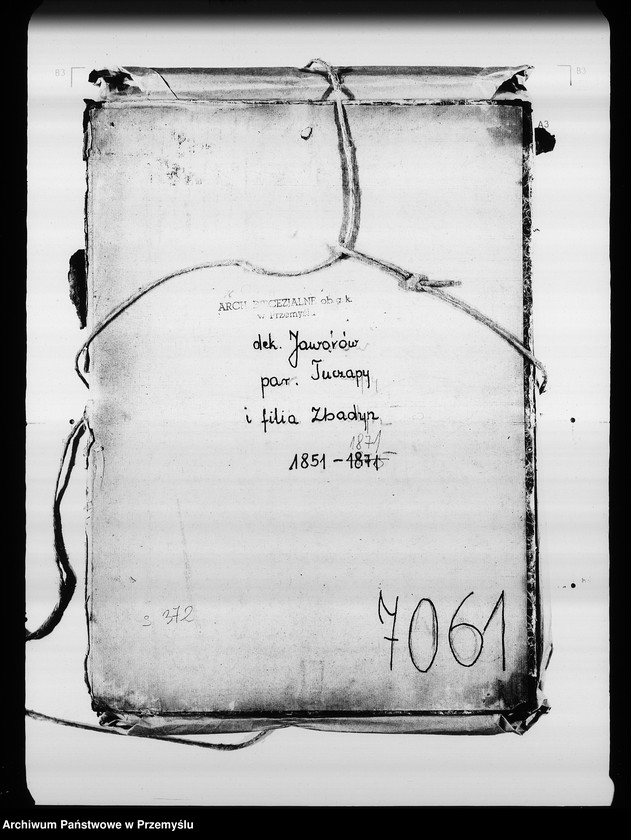 83
83
A3
ARCH. DIECEZJALNE ob. g. k.
w Przemyśl
dek. Jaworów
par. Tuczapy
i filia Zbadyn
1871
1851 – 1871
s 372
7061
Archiwum Państwowe w Przemyślu